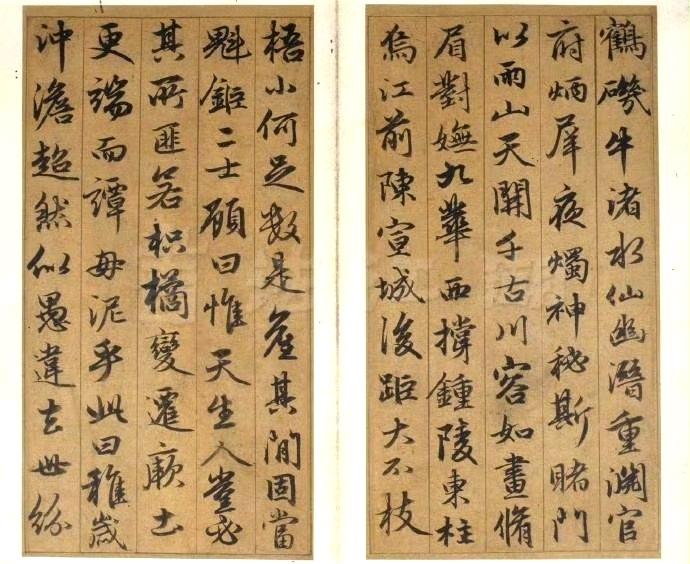 鶴磯牛渚水仙幽潛重淵官
府炳犀夜燭神秘斯睹門
以兩山天開千古川容如畫脩
眉對嫵九華西撐鍾陵東柱
焉江前陳宣城後距大不枝
梧小何足數是產其間固當
魁鉅二士顧曰惟天生人豈必
其所匪若枳橘變遷厥土
更端而譚毋泥乎此曰稚歲
沖澹超然似愚違去世紛